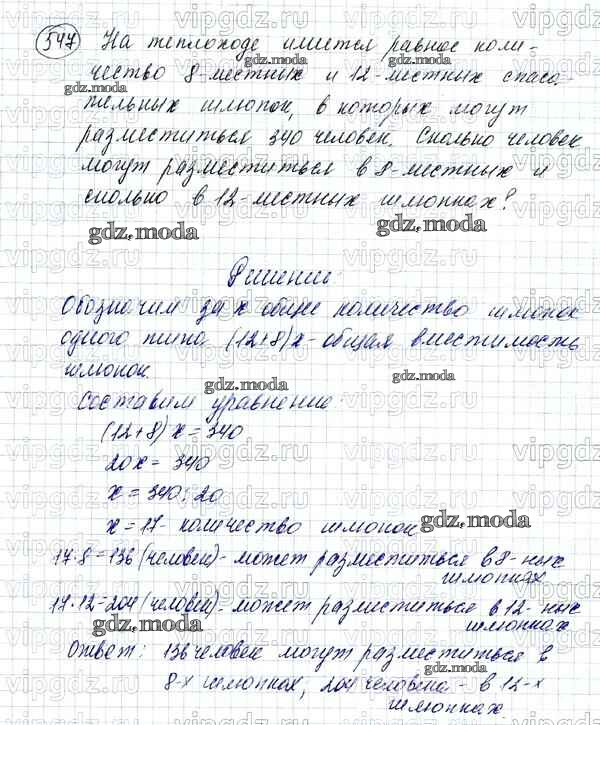 547 На теплоходе имеется равное коли-
чество 8-местных и 12-местных спаса-
тельных шлюпок, в которых могут
разместиться 340 человек. Сколько человек
могут разместиться в 8-местных и
сколько в 12-местных шлюпках?
Решение:
Обозначим за x общее количество шлюпок
одного типа (12+8)x - общая вместимость
шлюпок.
Составим уравнение:
(12+8)x = 340
20x = 340
x = 340:20
x = 17 - количество шлюпок
17·8=136 (человек) - может разместиться в 8-ных
шлюпках
17·12=204 (человек) - может разместиться в 12-ных
шлюпках
Ответ: 136 человек могут разместиться в
8-х шлюпках, 204 человека - в 12-х
шлюпках.
gdz.moda
vipgdz.ru